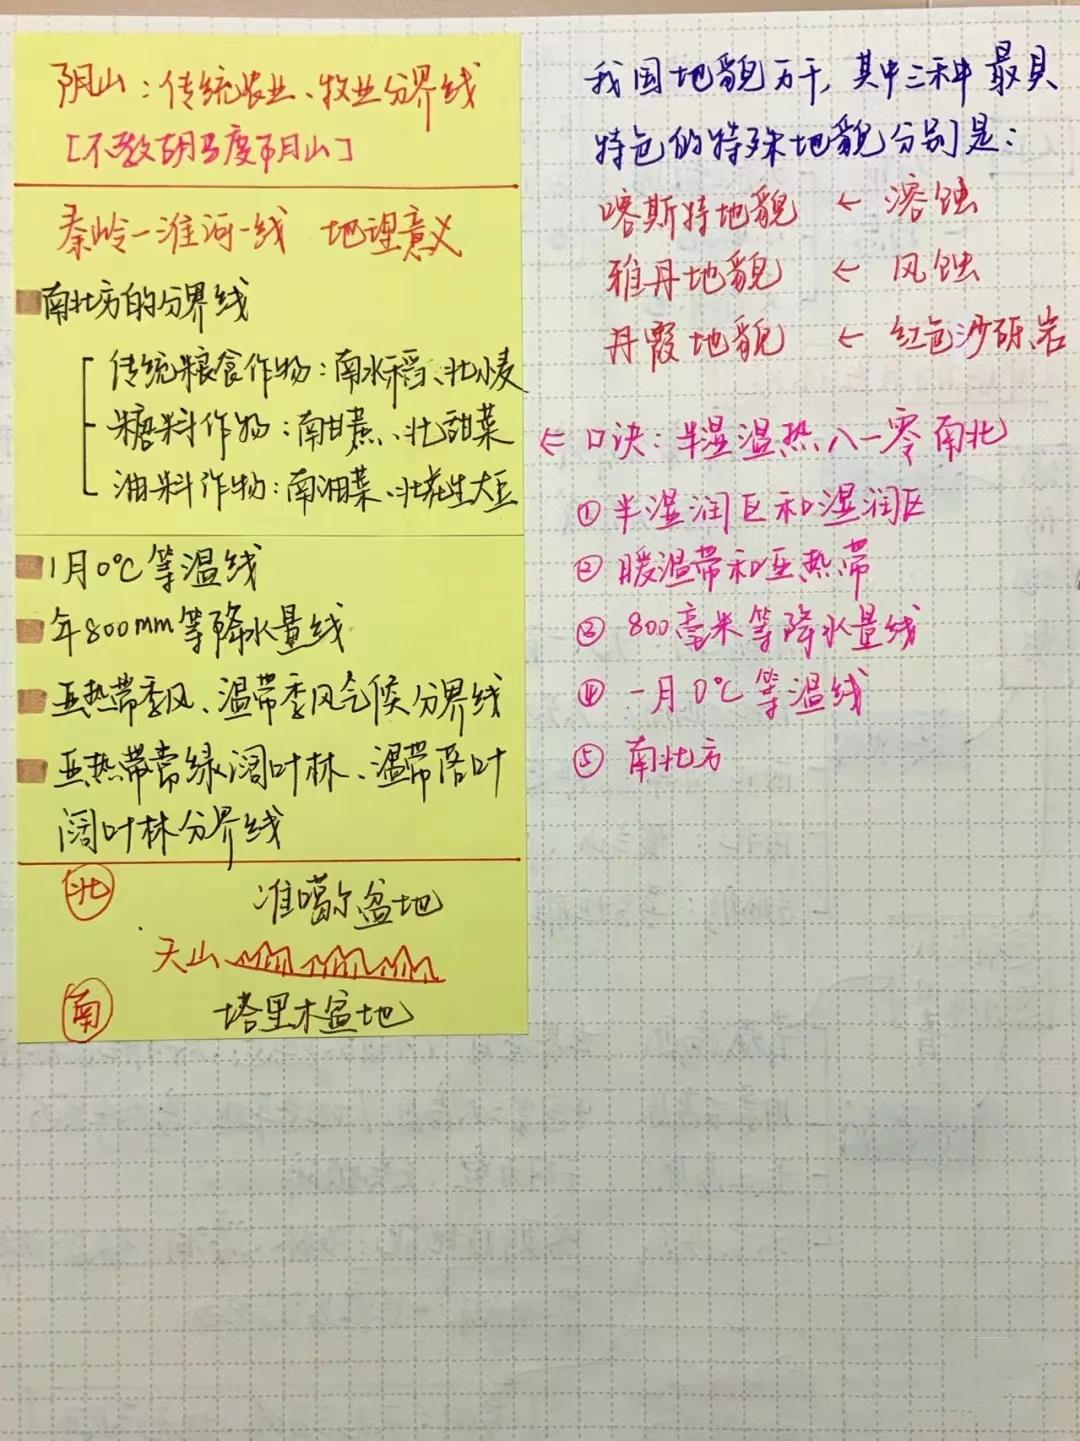 阴山：传统农业、牧业分界线
[不教胡马度阴山]
秦岭一淮河一线 地理意义
南北方的分界线
传统粮食作物：南水稻、北小麦
糖料作物：南甘蔗、北甜菜
油料作物：南油菜、北花生大豆
1月0℃等温线
年800mm等降水量线
亚热带季风、温带季风气候分界线
亚热带常绿阔叶林、温带落叶
阔叶林分界线
北 准噶尔盆地
天山
南 塔里木盆地
我国地貌万千,其中三种最具
特色的特殊地貌分别是：
喀斯特地貌 ← 溶蚀
雅丹地貌 ← 风蚀
丹霞地貌 ← 红色沙砾岩
← 口诀：半湿温热八一零南北
① 半湿润区和湿润区
② 暖温带和亚热带
③ 800毫米等降水量线
④ 一月0℃等温线
⑤ 南北方